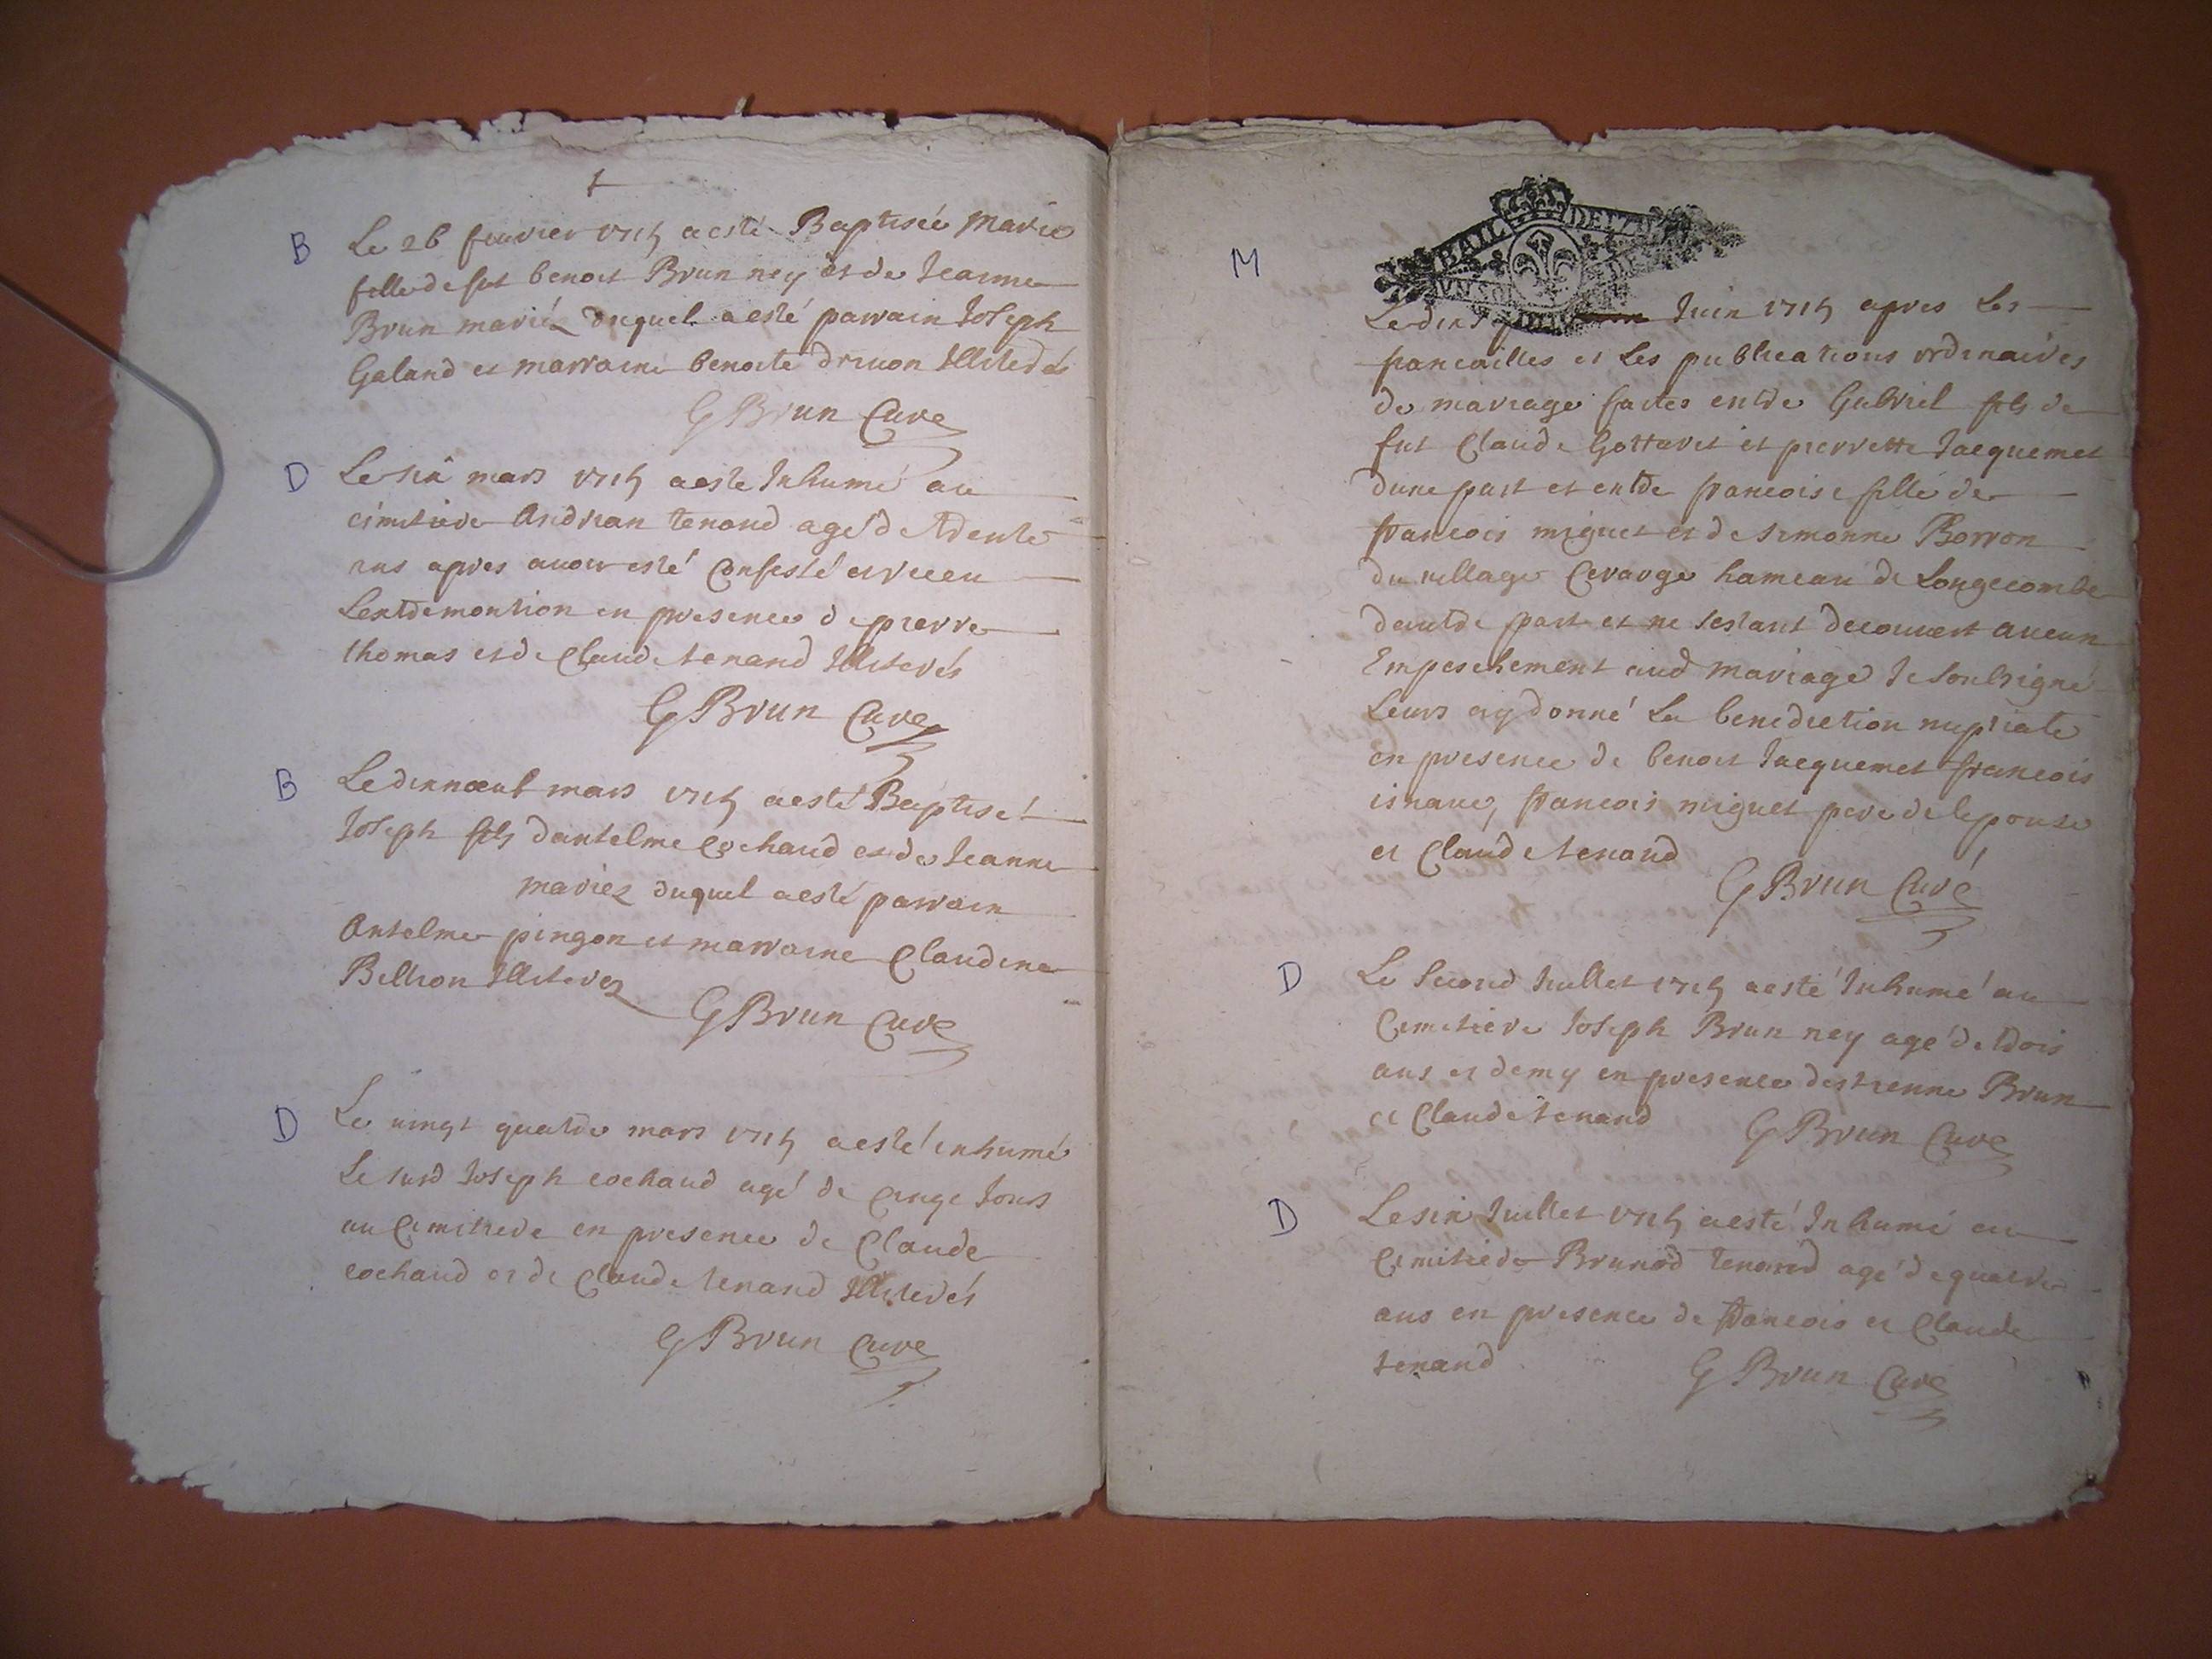 B
Le 26 feuvrier 1715 a esté Baptisée Marie
fille de fut benoit Brun ney et de Jeanne
Brun mariéz duquel a esté parrain Joseph
Galand et marraine benoite druon
G Brun Curé
D
Le six mars 1715 a esté Inhumé au
cimitiere Andrian tenand agé de trente
ans apres auoir esté Confessé et receu
Lextremontion en presence de pierre
thomas et de Claude tenand Illiterés
G Brun Curé
B
Le dixnoeuf mars 1715 a esté Baptisé
Joseph fils dantelme Cochaud et de Jeanne
mariez duquel a esté parrain
Antelme pingon et marraine Claudine
Billion Illiterez
G Brun Curé
D
Le vingt quatre mars 1715 a esté inhumé
Le susd Joseph cochaud agé de cinqe Jours
au Cimitiere en presence de Claude
cochaud et de Claude tenand Illiterés
G Brun Curé
BAIL
M
Juin 1715 apres Les
fiancailles et Les publications ordinaires
de mariage faites entre Gabriel fils de
fut Claude Gottaret et pierrette Jacquemet
dune part et entre francoise fille de
francois miguet et de simonne Borron
du village Cerarge hameau de Longecombe
dautre part et ne sestant decouvert aucun
Empeschement aud mariage Je soubsigné
Leurs ay donné La benediction nuptiale
en presence de benoit Jacquemet francois
francois miguet pere de lepouse
et Claude tenand
G Brun Curé
D
Le Second Juillet 1715 a esté Inhumé au
Cimitiere Joseph Brun ney agé de trois
ans et demy en presence destienne Brun
et Claude tenand
G Brun Curé
D
Le six Juillet 1715 a esté Inhumé au
Cimitiere tenand agé de quatre
ans en presence de francois et Claude
tenand
G Brun Curé